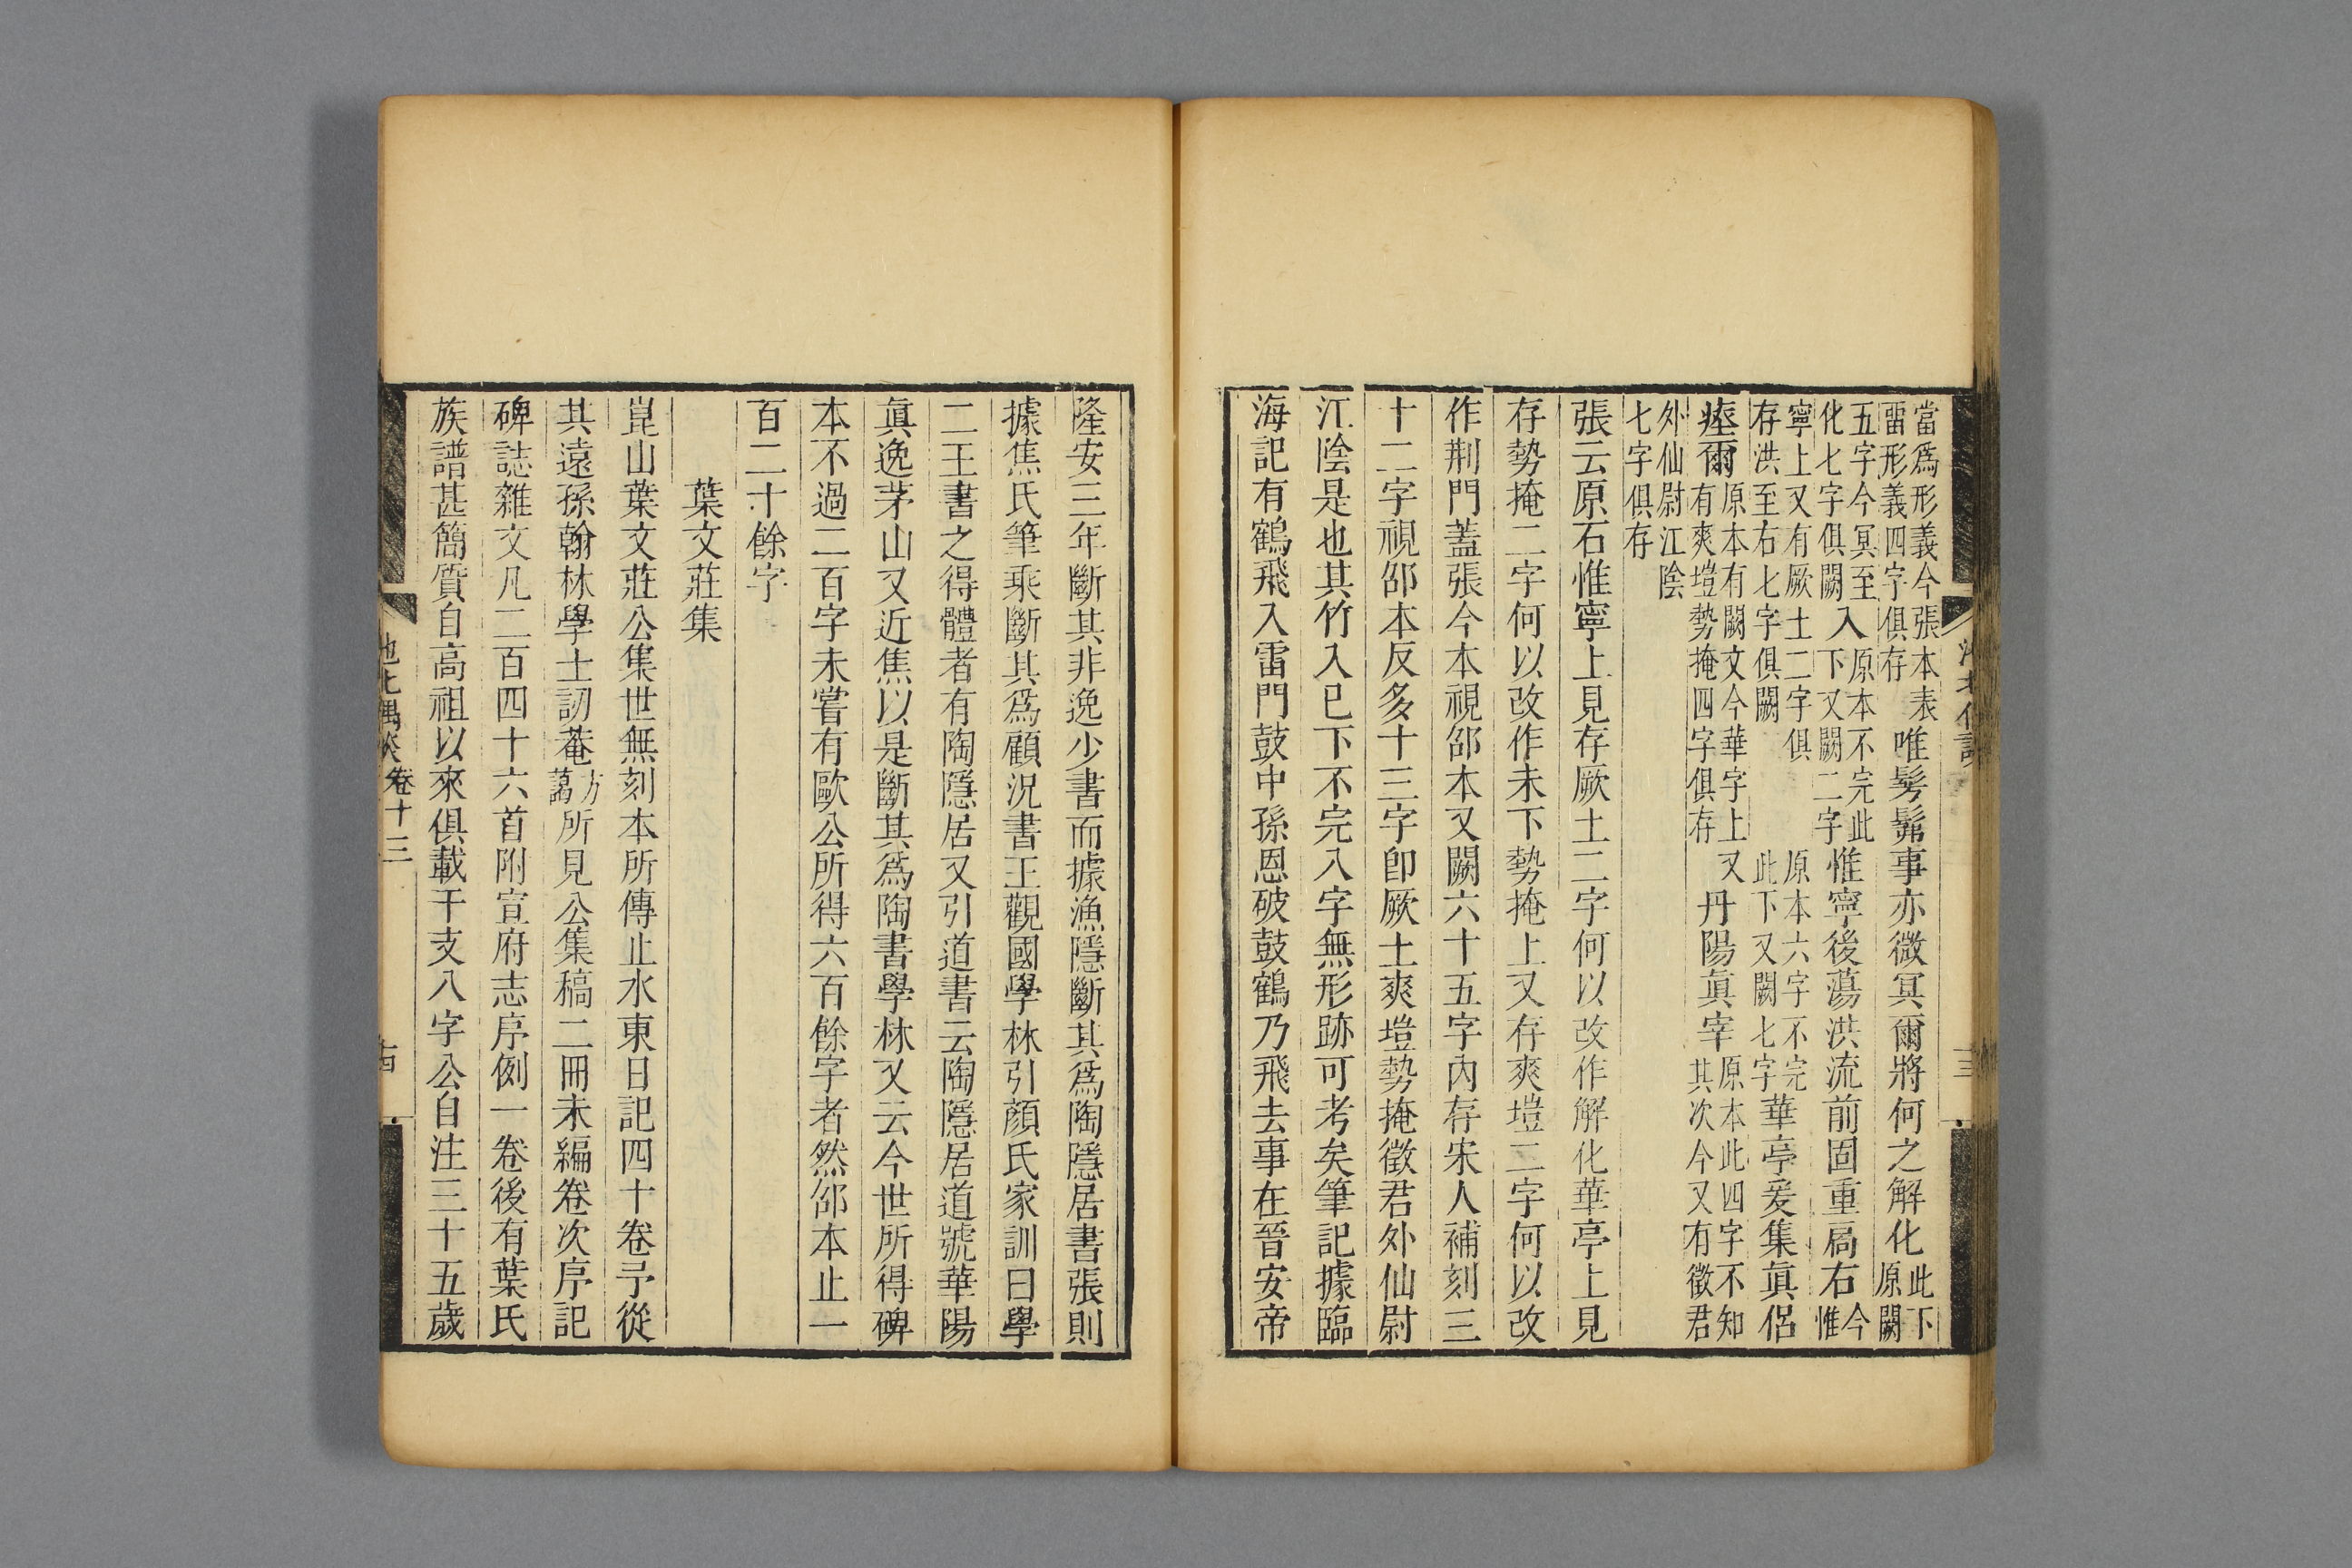 當爲形義今張本表雷形義四字俱存唯髣髴事亦微冥爾將何之解化此下原闕
五字今冥至化七字俱闕入原本不完此下又闕二字惟寧後蕩洪流前固重扃右今惟
寧上又有厥土二字俱存洪至右七字俱闕原本六字不完此下又闕七字華亭爰集眞侶
瘞爾原本有闕文今華字上又有爽塏勢掩四字俱存丹陽眞宰原本此四字不知其次今又有徵君
外仙尉江陰七字俱存
張云原石惟寧上見存厥土二字何以改作解化華亭上見
存勢掩二字何以改作未下勢掩上又存爽塏二字何以改
作荆門蓋張今本視邵本又闕六十五字內存宋人補刻三
十二字視邵本反多十三字卽厥土爽塏勢掩徵君外仙尉
江陰是也其竹入巳下不完入字無形跡可考矣筆記據臨
海記有鶴飛入雷門鼓中孫恩破鼓鶴乃飛去事在晉安帝
三
隆安三年斷其非逸少書而據漁隱斷其爲陶隱居書張則
據焦氏筆乘斷其爲顧況書王觀國學林引顏氏家訓曰學
二王書之得體者有陶隱居又引道書云陶隱居道號華陽
眞逸茅山又近焦以是斷其爲陶書學林又云今世所得碑
本不過二百字未嘗有歐公所得六百餘字者然邵本止一
百二十餘字
葉文莊集
崑山葉文莊公集世無刻本所傳止水東日記四十卷予從
其遠孫翰林學士訒菴方藹所見公集稿二冊未編卷次序記
碑誌雜文凡二百四十六首附宣府志序例一卷後有葉氏
族譜甚簡質自高祖以來俱載干支八字公自注三十五歲
池北偶談卷十三